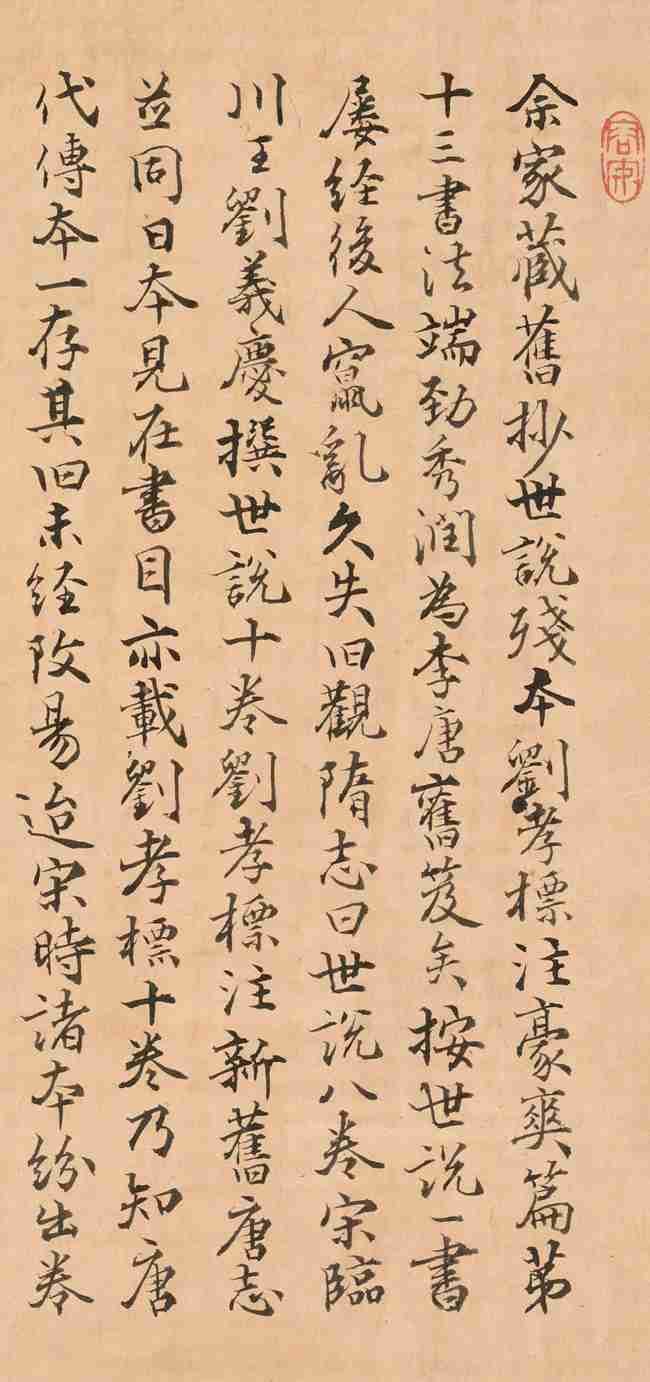 余家蔵舊抄世説残本劉孝標注豪爽篇第
十三書法端勁秀潤為李唐舊笈矣按世説一書
屡経後人竄亂久失旧觀隋志曰世説八巻宋臨
川王劉義慶撰世説十巻劉孝標注新舊唐志
並同日本見在書目亦載劉孝標十巻乃知唐
代傳本一存其旧未経改易迨宋時諸本紛出巻